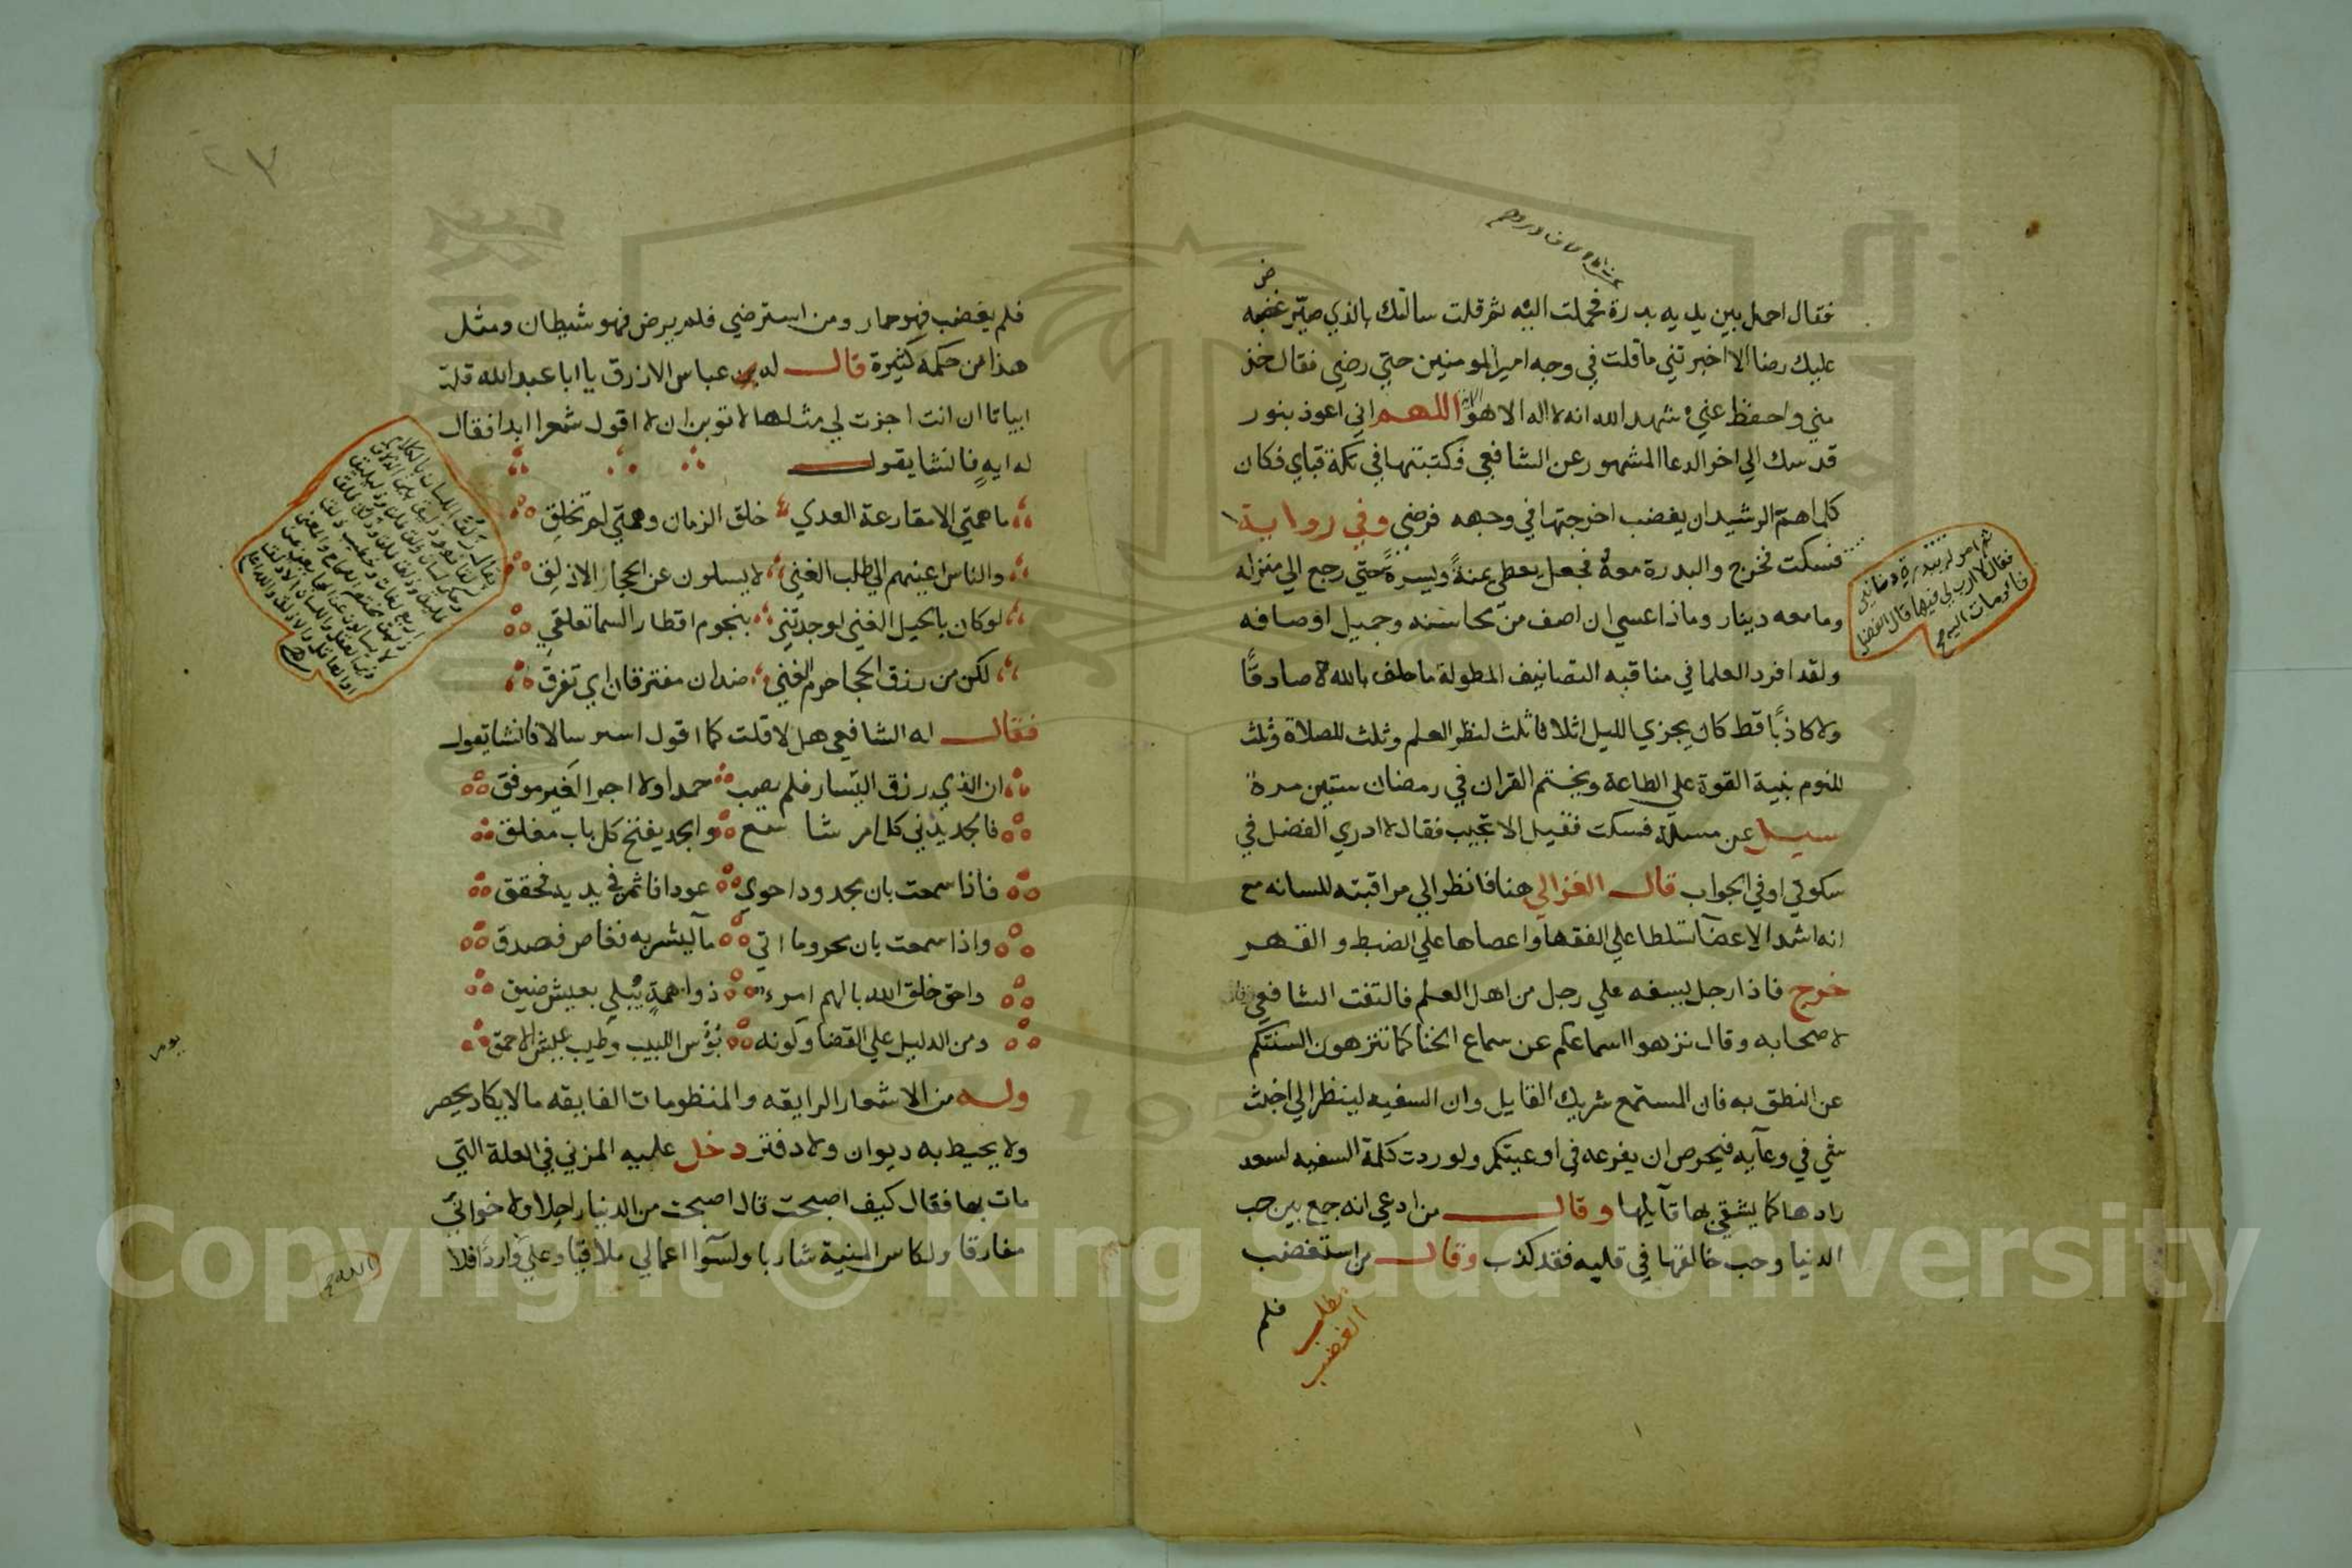 فقال احمل بين يديه بدرة فحملت اليه ثم قلت سالتك بالذي صير غضبه
عليك رضا الا اخبرتني ما قلت في وجه امير المومنين حتي رضي فقال خذ
مني واحفظ عني شهد الله انه لا اله الا هو الاية اللهم اني اعوذ بنور
قدسك الي اخر الدعا المشهور عن الشافعي فكتبتها في تكة قباي فكان
كلما هم الرشيد ان يغضب اخرجتها في وجهه فرضي وفي رواية
فسكت فخرج والبدرة معه فجعل يعطي يمنة ويسرة حتي رجع الي منزله
وما معه دينار وماذا عسي ان اصف من محاسنه وجميل اوصافه
ولقد افرد العلما في مناقبه التصانيف المطولة ما حلف بالله لا صادقا
ولا كاذبا قط كان يجزي الليل اثلاثا ثلث لنظر العلم وثلث للصلاة وثلث
للنوم بنية القوة علي الطاعة ويختم القران في رمضان ستين مرة
سيل عن مسلة فسكت فقيل الا تجيب فقال لا ادري الفضل في
سكوتي او في الجواب قال الغزالي هنا فانظر الي مراقبته للسانه مع
انه اشد الاعضا تسلطا علي الفقها واعصاها علي الضبط والقهر
خرج فاذا رجل يسفه علي رجل من اهل العلم فالتفت الشافعي
لاصحابه وقال نزهوا اسماعكم عن سماع الخنا كما تنزهون السنتكم
عن النطق به فان المستمع شريك القايل وان السفيه لينظر الي اخبث
شي في وعآيه فيحرص ان يفرغه في اوعيتكم ولو ردت كلمة السفيه لسعد
رادها كما يشقي بها قآيلها وقال من ادعي انه جمع بين حب
الدنيا وحب خالقها في قلبه فقد كذب وقال من استغضب
فلم
مطلب
الغضب
ثم امر لي ببدرة دنانير
فقال لا ارب لي فيها قال الفضل
٢٧
فلم يغضب فهو حمار ومن استرضي فلم يرض فهو شيطان ومثل
هذا من حكمه كثيرة قال له عباس الازرق يا ابا عبد الله قلت
ابياتا ان انت اجزت لي مثلها لاتوبن ان لا اقول شعرا ابدا فقال
له ايه فانشا يقول
ما همتي الا مقارعة العدي خلق الزمان وهمتي لم تخلق
والناس اعينهم الي طلب الغني لا يسلون عن الحجار الاذلق
لو كان بالحيل الغني لوجدتني بنجوم اقطار السما تعلقي
لكن من رزق الحجا حرم الغني ضدان مفترقان اي تفرق
فقال له الشافعي هل لا قلت كما اقول استرسالا فانشا يقول
ان الذي رزق اليسار فلم يصب حمدا ولا اجرا لغير موفق
فالجد يدني كل امر شاسع والجد يفتح كل باب مغلق
فاذا سمعت بان مجدودا حوي عودا فاثمر في يديه فحقق
واذا سمعت بان محروما اتي مآ ليشربه فغاص فصدق
واحق خلق الله بالهم امرء ذوا همة يبلي بعيش ضيق
ومن الدليل علي القضا وكونه بؤس اللبيب وطيب عيش الاحمق
وله من الاشعار الرايقه والمنظومات الفايقه ما لا يكاد يحصر
ولا يحيط به ديوان ولا دفتر دخل عليه المزني في العلة التي
مات بها فقال كيف اصبحت قال اصبحت من الدنيا راحلا ولاخواني
مفارقا ولكاس المنية شاربا ولسوآ اعمالي ملاقيا وعلي واردا فلا
الله
Copyright © King Saud University
1957